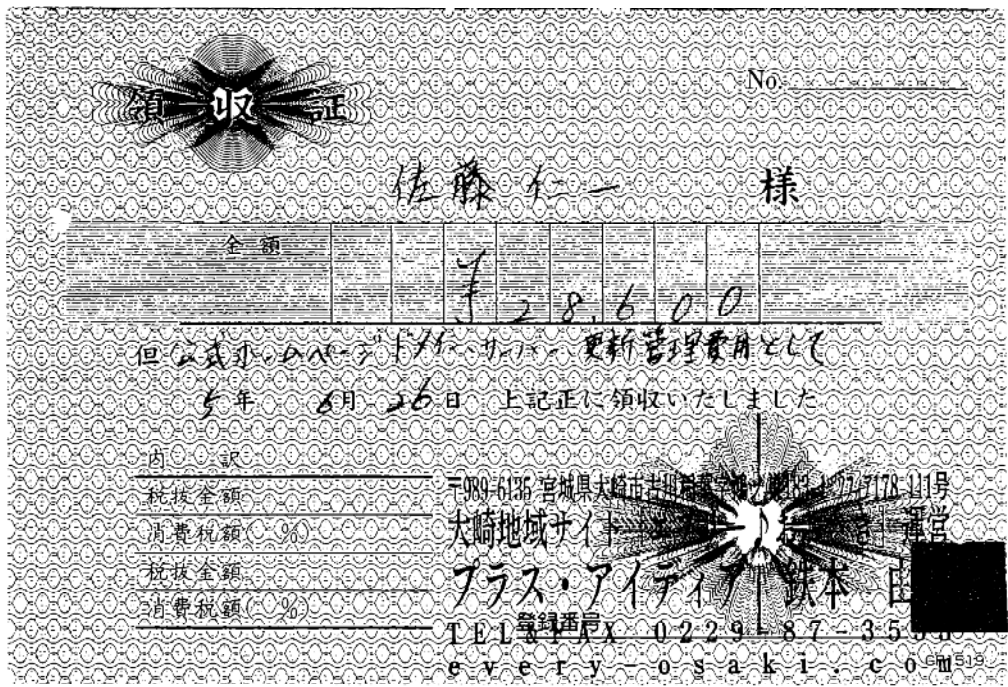 領収証
No.
佐藤 仁一 様
金額
¥28,600
但 公式ホームページドメイン、サーバー、更新管理費用として
5年 6月 26日 上記正に領収いたしました
内訳
税抜金額
消費税額( %)
税抜金額
消費税額( %)
〒989-6135 宮城県大崎市古川 111号
大崎地域サイト 運営
プラス・アイディア 鉄本
登録番号
TEL&FAX 0229-87-35
every-osaki.com